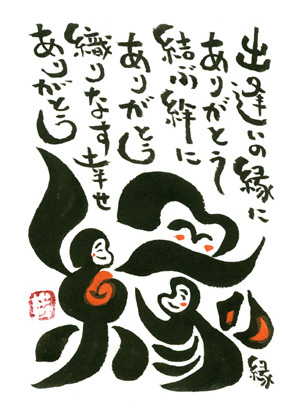 出逢いの縁に
ありがとう
結ぶ絆に
ありがとう
織りなす幸せ
ありがとう
縁